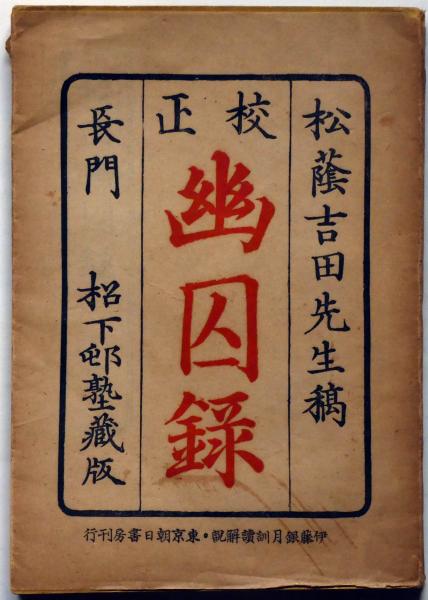 松蔭吉田先生稿
校正
幽囚録
長門 松下邨塾藏版
伊藤銀月訓讀解説・東京朝日書房刊行